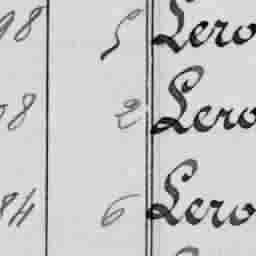 98 5 Lero
98 2 Lero
84 6 Lero